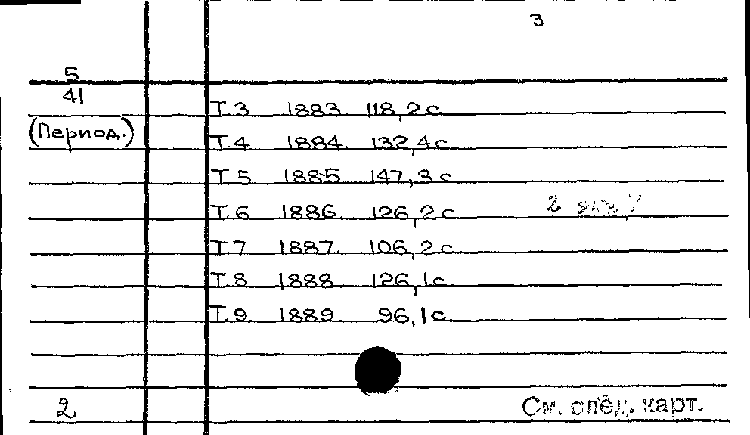 3
5
41
(Период.)
Т.3 1883. 118,2с.
Т.4 1884. 132,4с.
Т.5 1885. 147,3с.
Т.6 1886. 126,2с. 2 экз.
Т.7 1887. 106,2с.
Т.8 1888. 126,1с.
Т.9 1889. 96,1с.
2
См. след. карт.